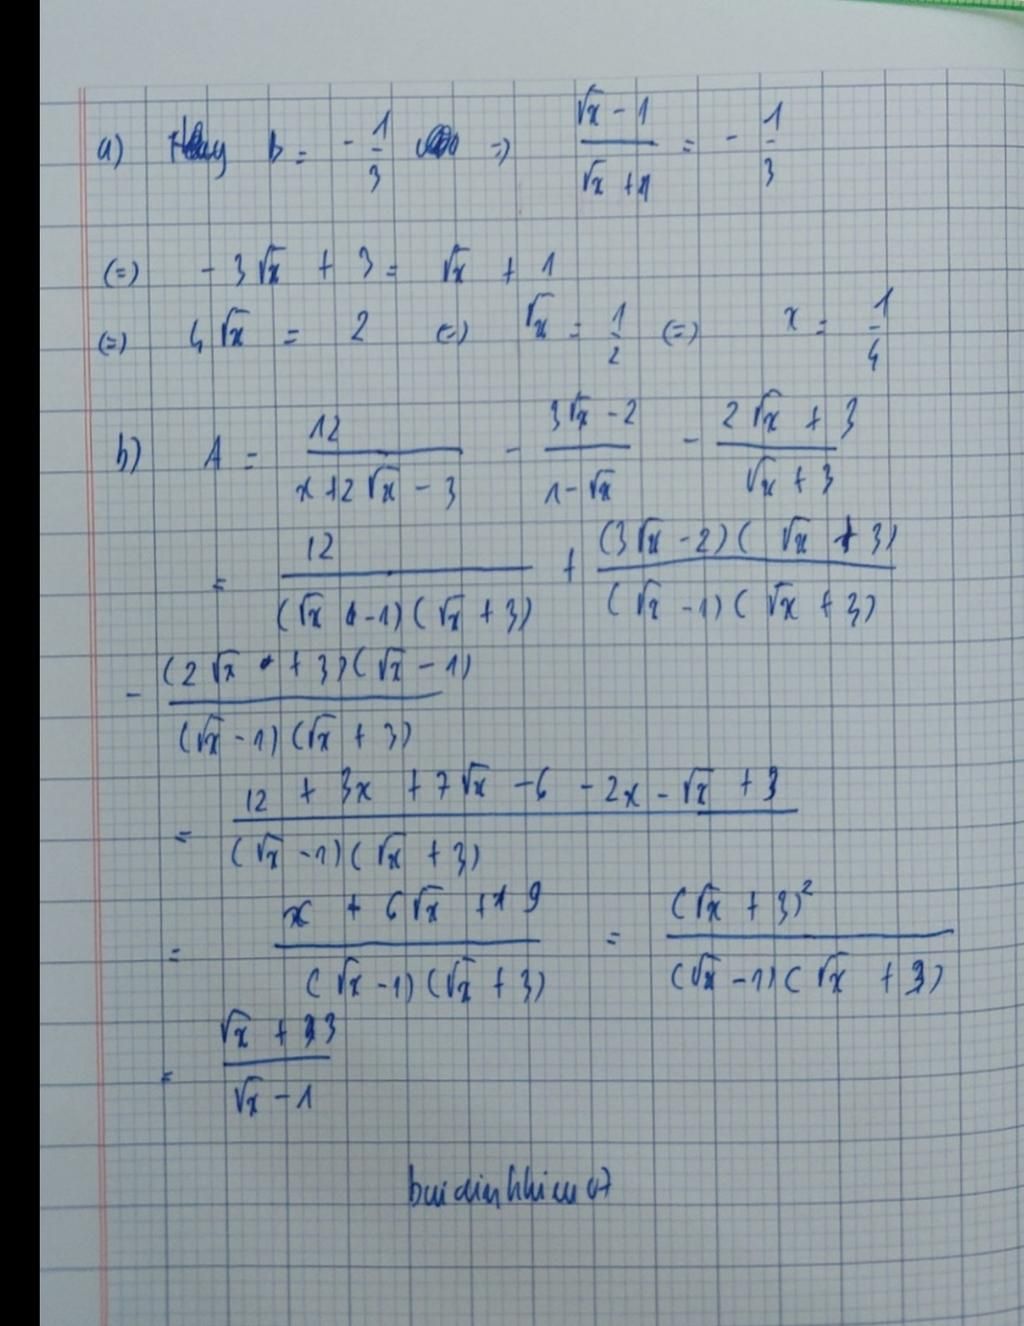 a) Thay B = - 1/3 => (√x - 1)/(√x + 1) = - 1/3
(=) - 3√x + 3 = √x + 1
(=) 4√x = 2 (=) √x = 1/2 (=) x = 1/4
b) A = 12/(x + 2√x - 3) - (3√x - 2)/(1 - √x) - (2√x + 3)/(√x + 3)
= 12/((√x - 1)(√x + 3)) + ((3√x - 2)(√x + 3))/((√x - 1)(√x + 3))
- ((2√x + 3)(√x - 1))/((√x - 1)(√x + 3))
= (12 + 3x + 7√x - 6 - 2x - √x + 3)/((√x - 1)(√x + 3))
= (x + 6√x + 9)/((√x - 1)(√x + 3)) = (√x + 3)²/((√x - 1)(√x + 3))
= (√x + 3)/(√x - 1)